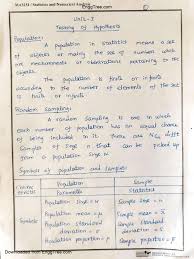 MA3251 - Statistics and Numerical Methods
EnggTree.com
UNIT-I
Testing of Hypothesis
Population:
A population in statistics means a set
of objects or mainly the set of numbers which
are measurements or observations pertaining to the
objects.
The population is finite or infinite
according to the number of elements of the set
is finite or infinite.
Random Sampling:
A random sampling is one in which
each number of population has an equal chance
of being included in it. There are NCn diff
Samples of size n that can be picked
up from a population size N.
Symbols of population and samples:
Population
Sample
Parameter
Statistics
Symbols
Population size = N
Sample size = n
Population mean = μ
Sample mean = x̄
Population standard deviation = σ
Sample standard deviation = s
Population proportion = P
Sample proportion = p
Downloaded from EnggTree.com